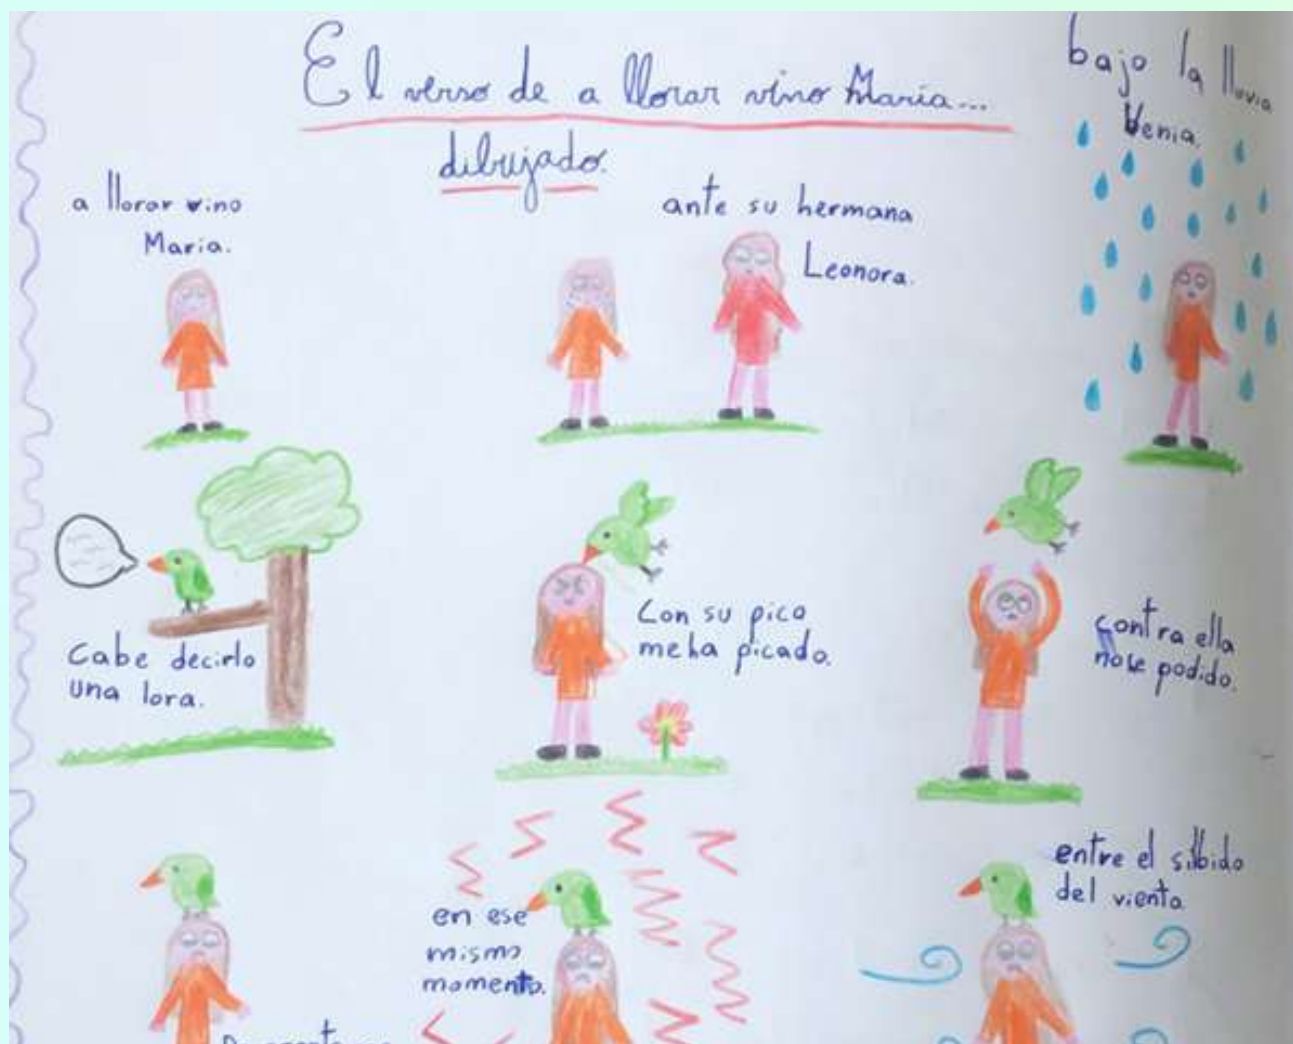 El verso de a llorar vino María...
dibujado.
a llorar vino
Maria.
ante su hermana
Leonora.
bajo la lluvia
Venia.
Cabe decirlo
una lora.
Con su pico
meha picado.
contra ella
nose podido.
en ese
mismo
momento.
entre el silbido
del viento